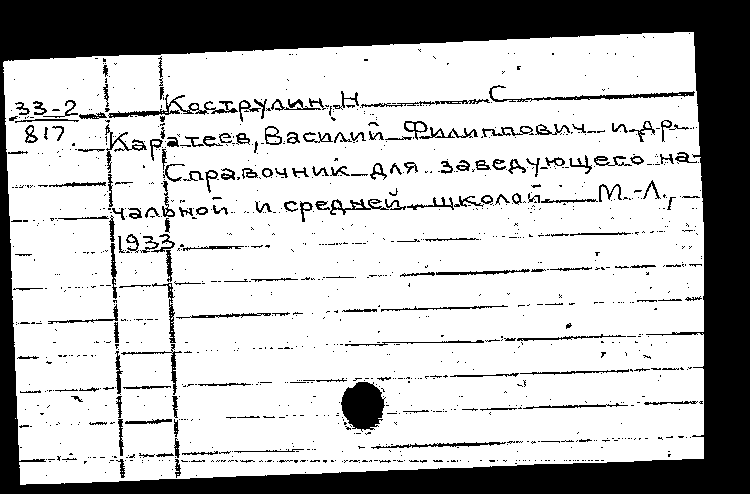 33-2
817.
Кострулин, Н С
Каратеев, Василий Филиппович и др.
Справочник для заведующего на-
чальной и средней школой М.-Л.,
1933.